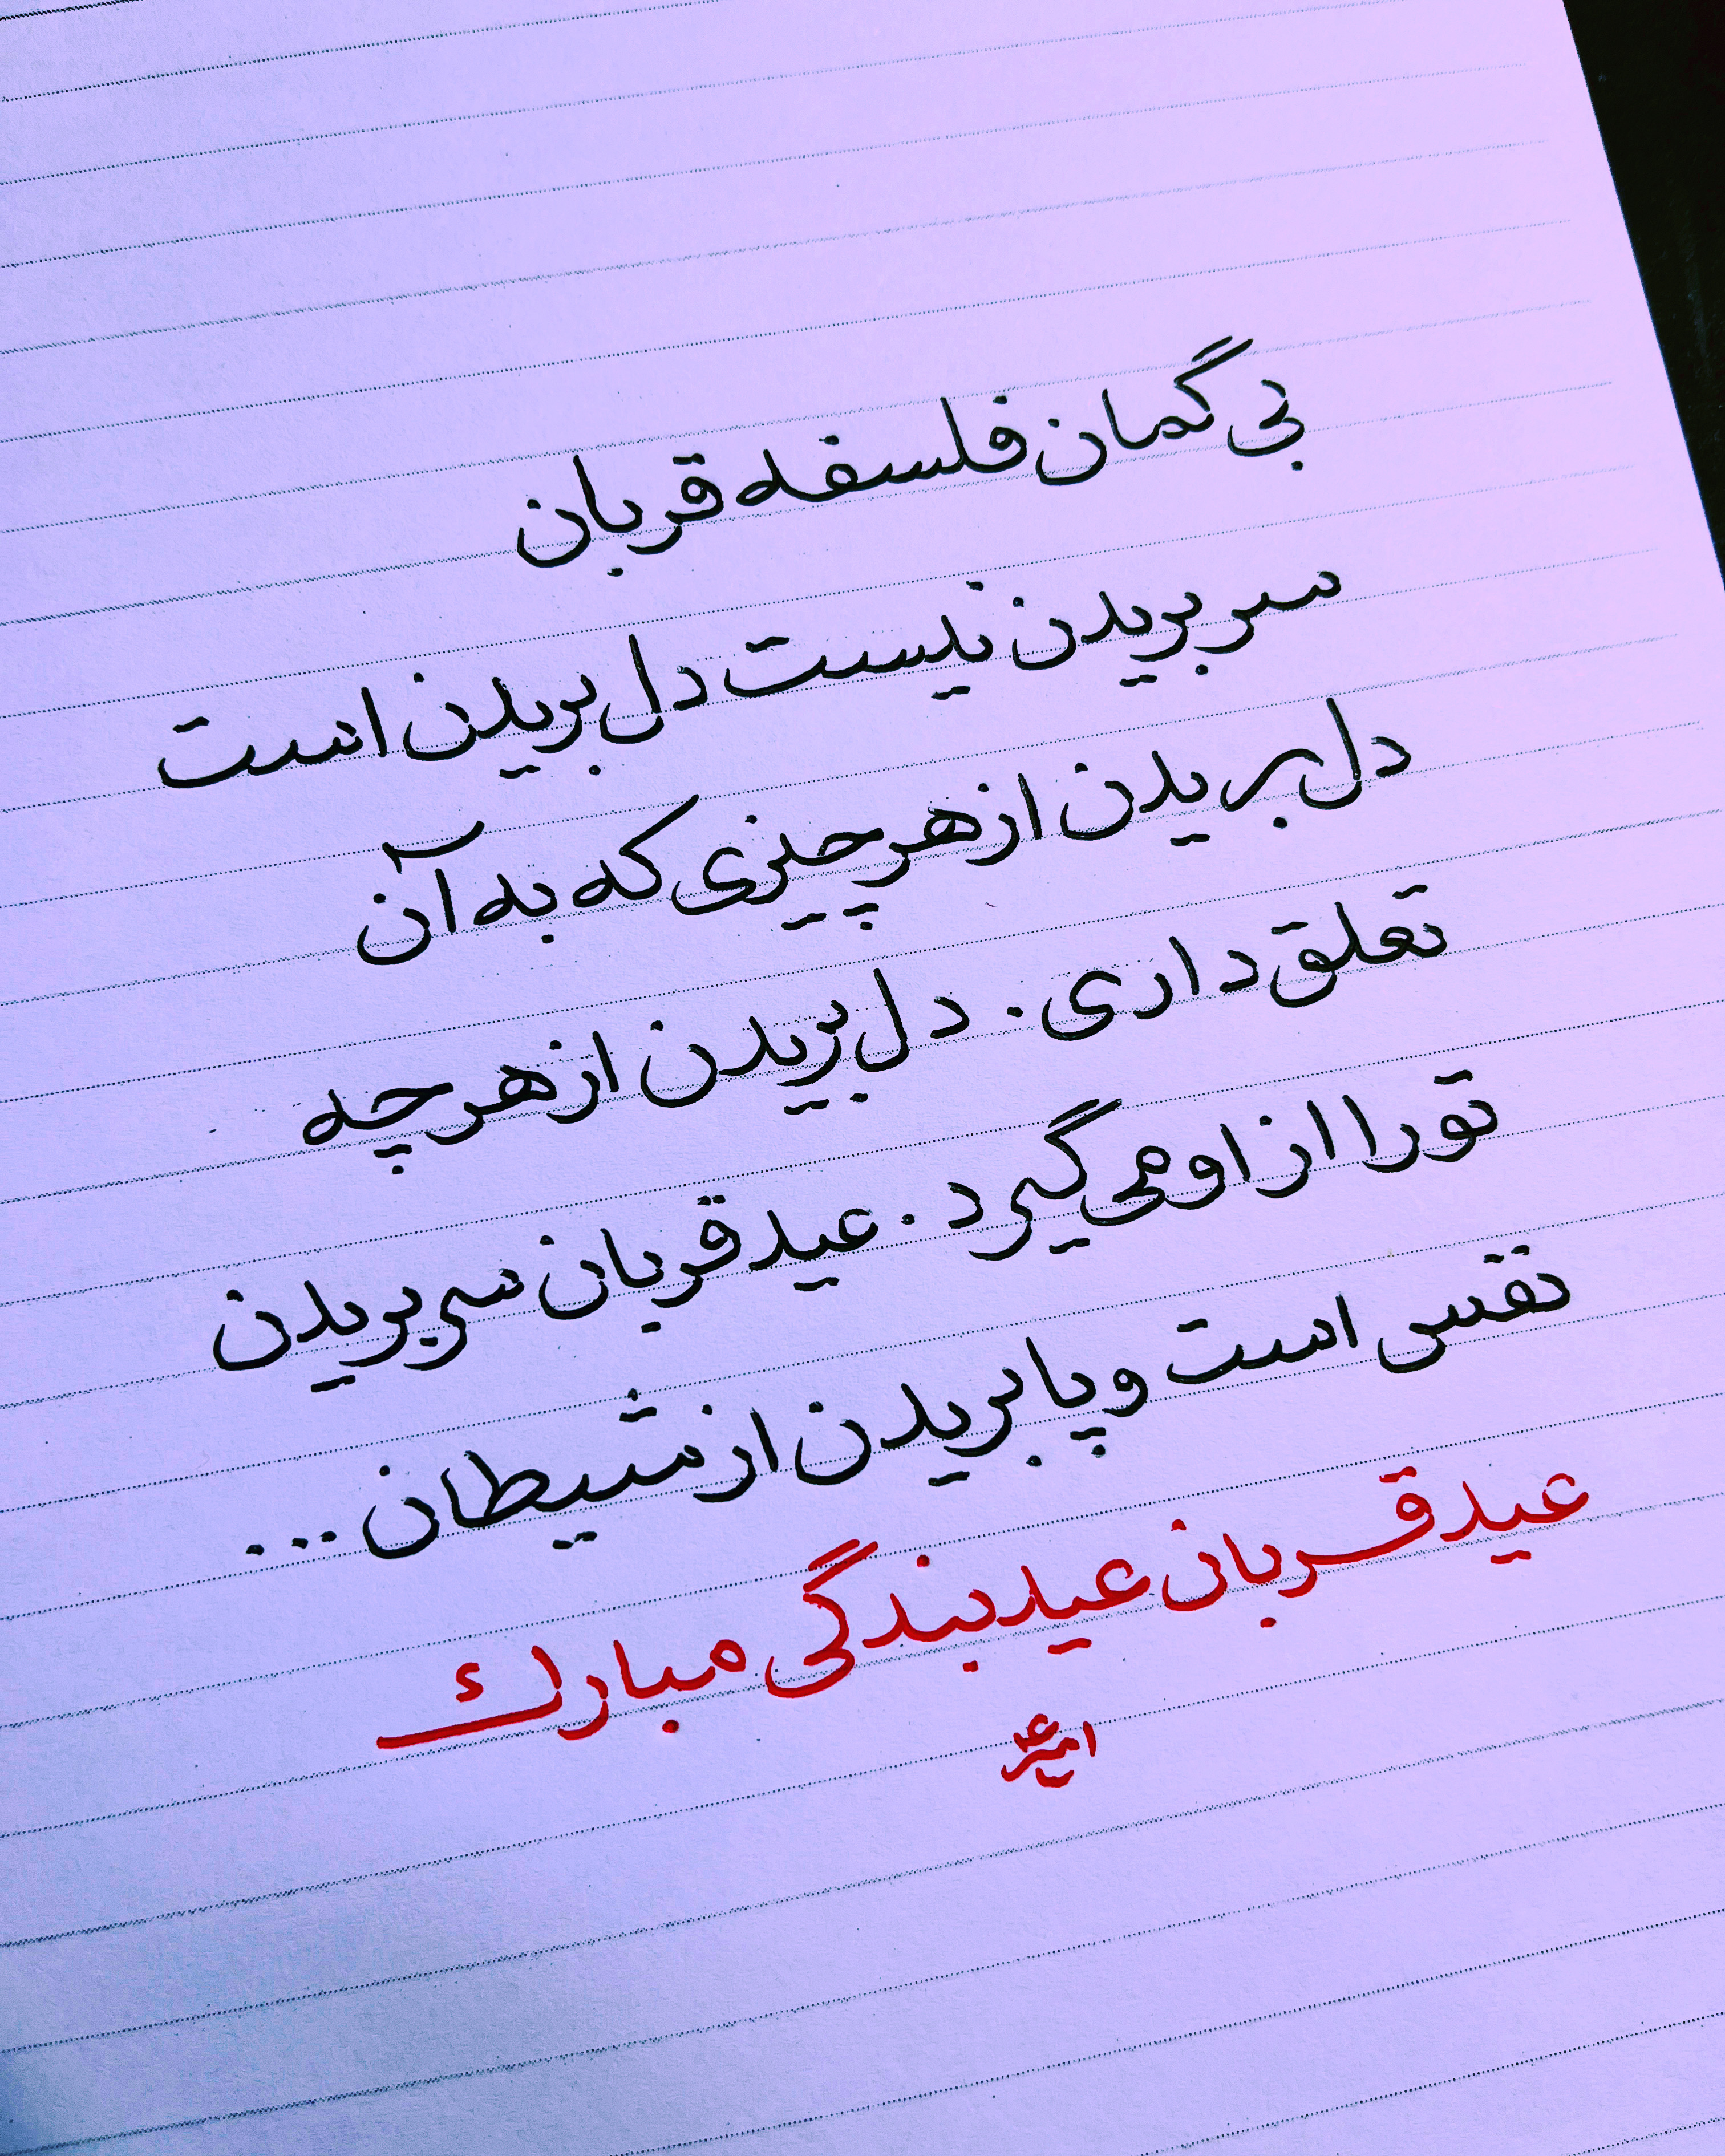 بی گمان فلسفه قربان
سر بریدن نیست دل بریدن است
دل بریدن از هر چیزی که به آن
تعلق داری . دل بریدن از هر چه
تو را از او می گیرد . عید قربان سر بریدن
نفس است و پا بریدن از شیطان ...
عید قربان عید بندگی مبارک
امیر